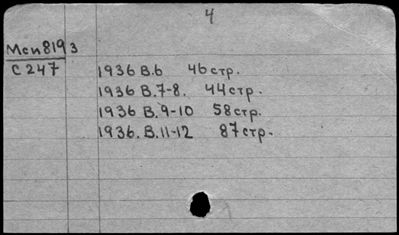 4
Мсп8193
С247
1936 В.6 46стр.
1936 В.7-8. 44стр.
1936 В.9-10 58стр.
1936. В.11-12 87стр.